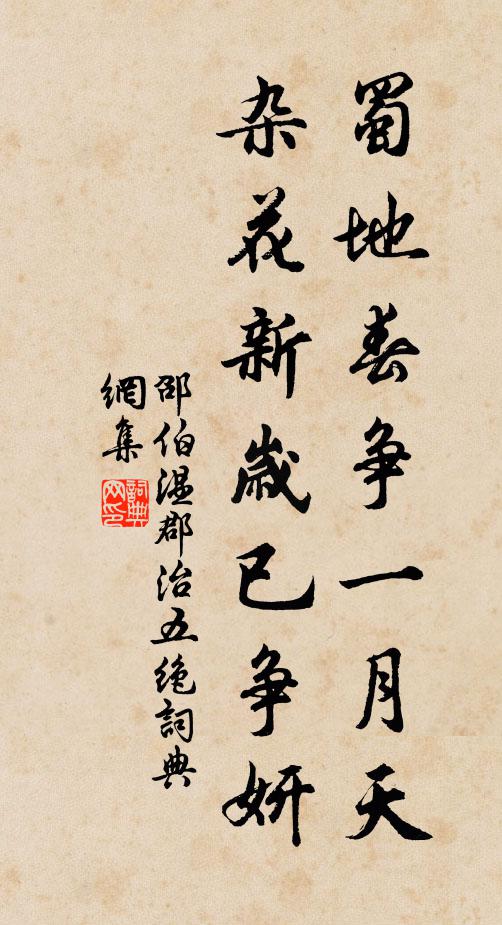 蜀地春争一月天
杂花新歲已争妍
邵伯温郡治五絶詞典
網集
詞典
网印